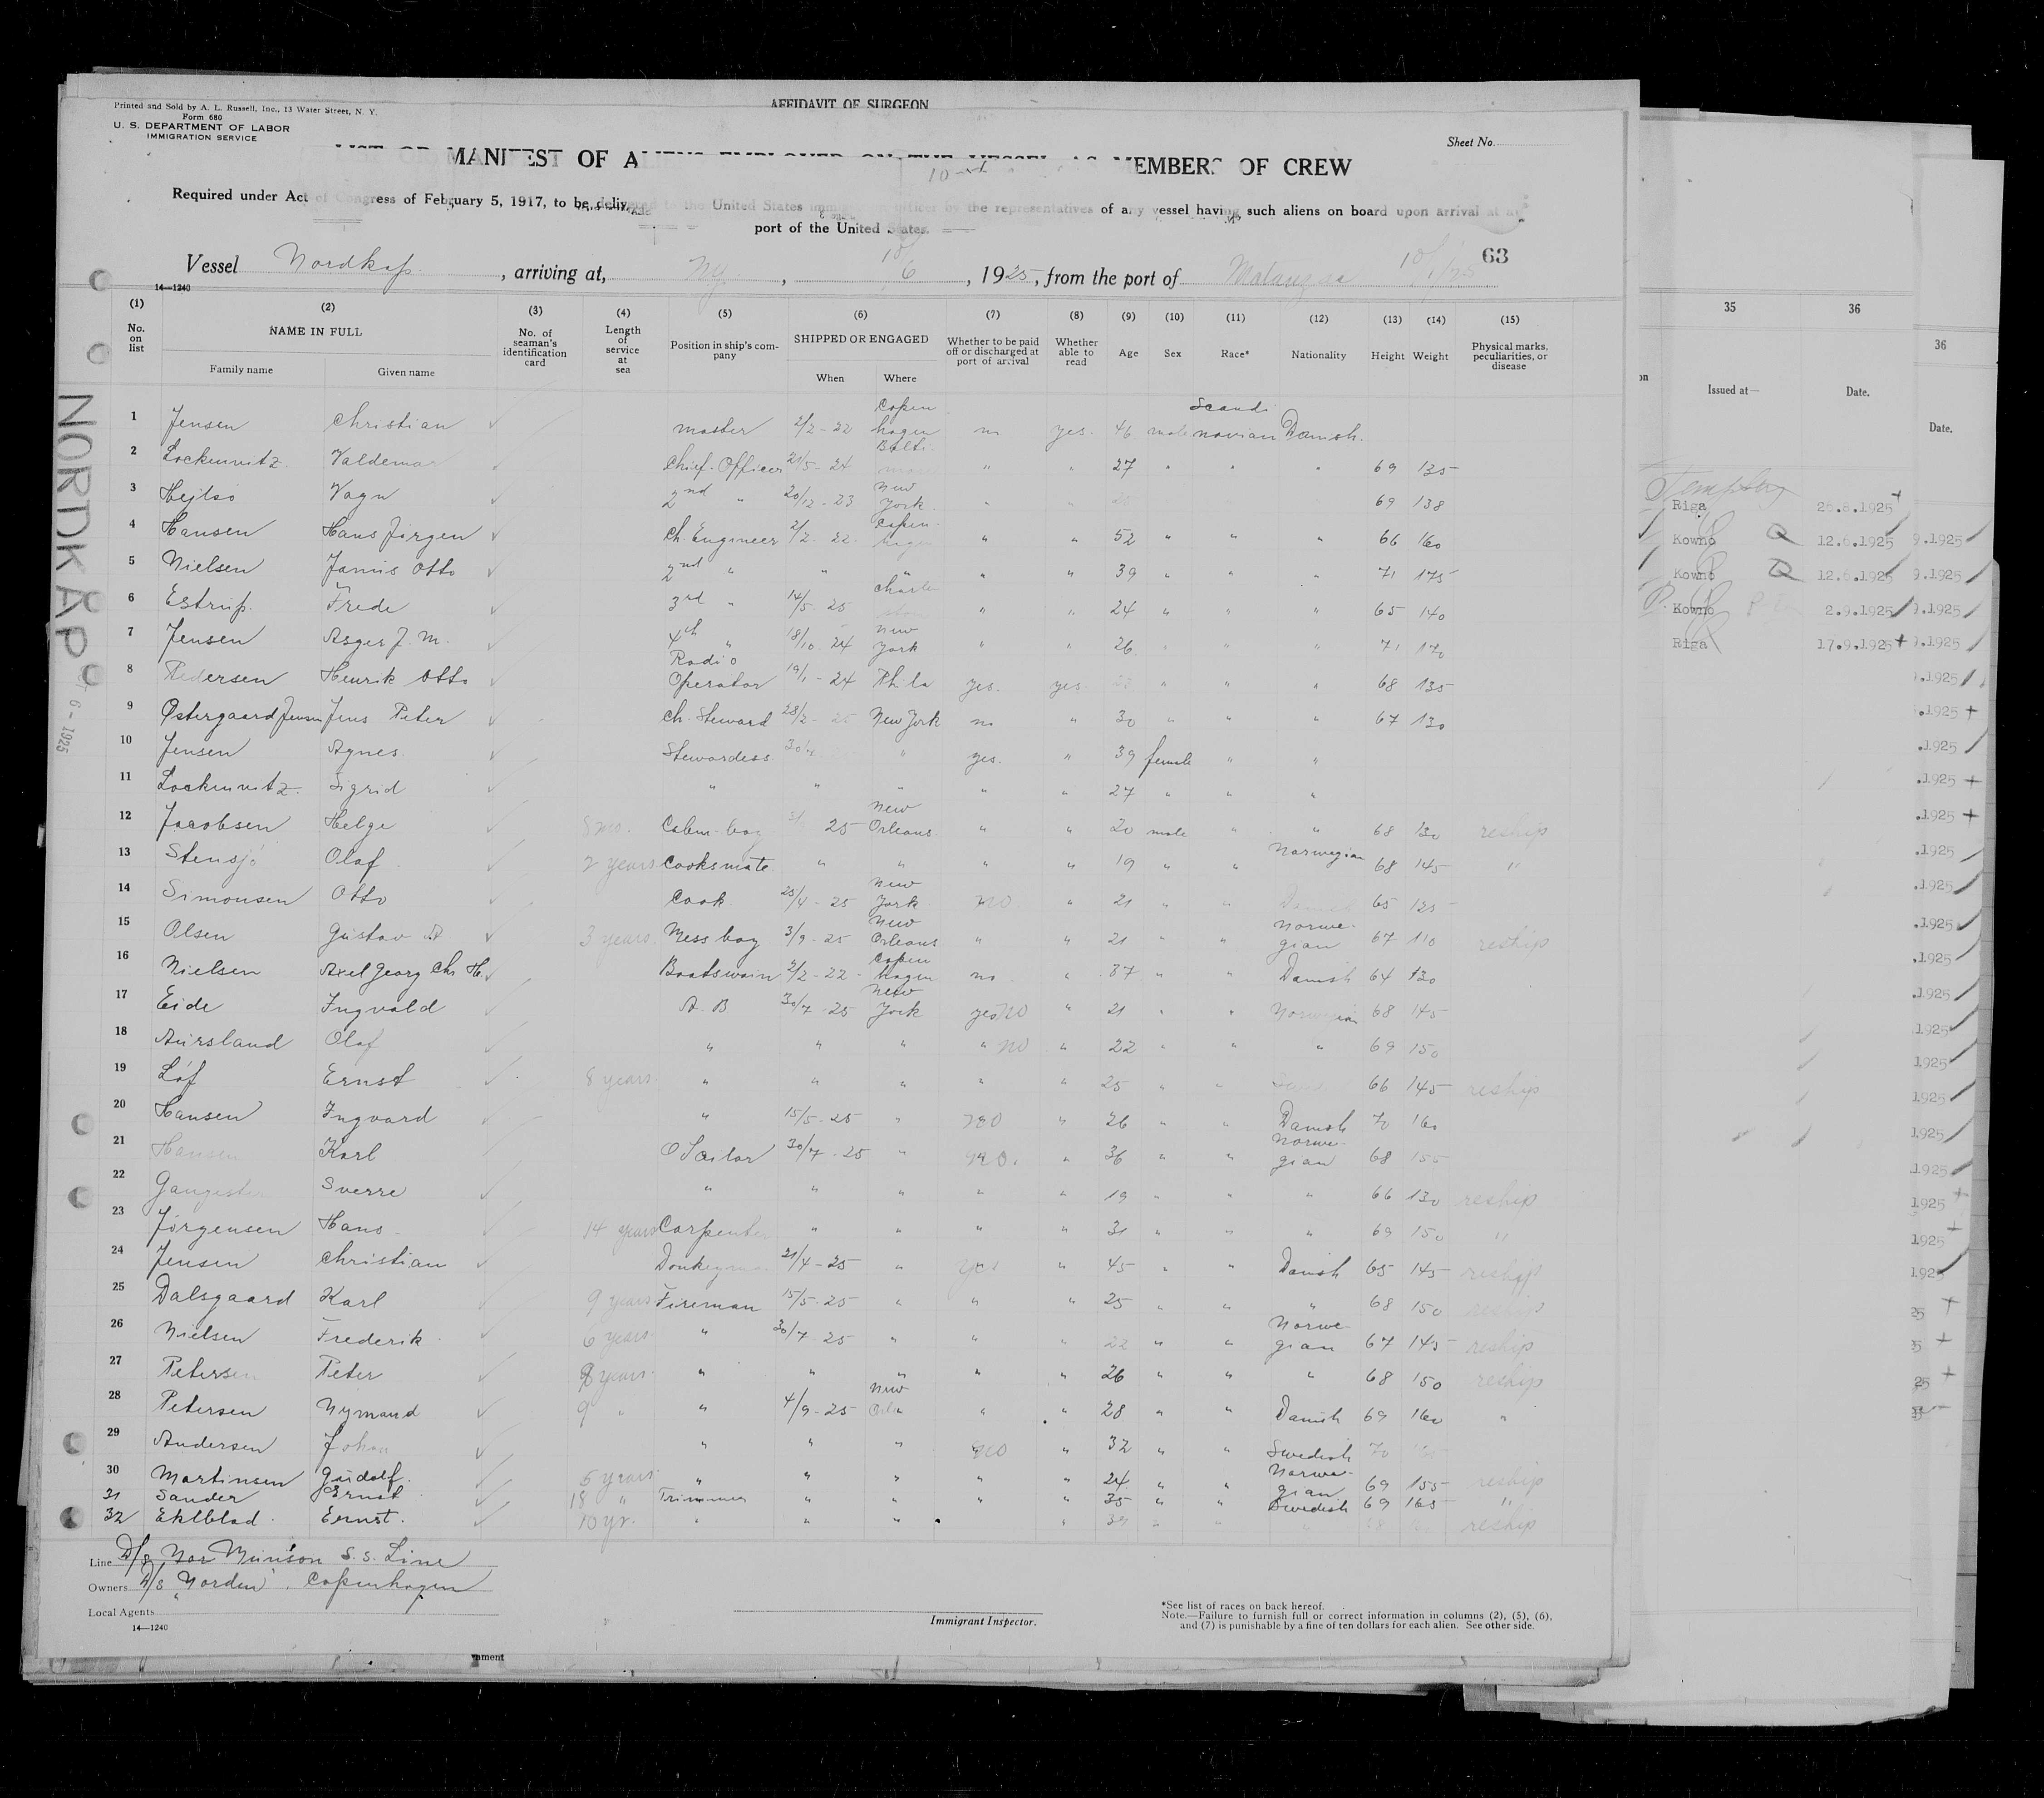 AFFIDAVIT OF SURGEON
Printed and Sold by A. L. Russell, Inc., 13 Water Street, N. Y.
Form 680
U. S. DEPARTMENT OF LABOR
IMMIGRATION SERVICE
Sheet No.
LIST OR MANIFEST OF ALIENS EMPLOYED ON THE VESSEL AS MEMBERS OF CREW
Required under Act of Congress of February 5, 1917, to be delivered to the United States immigration officer by the representatives of any vessel having such aliens on board upon arrival at a
port of the United States.
63
Vessel Nordkap, arriving at, N.Y., 10/6, 1925, from the port of Matanzas 10/1/25
14—1240
(1) (2) (3) (4) (5) (6) (7) (8) (9) (10) (11) (12) (13) (14) (15)
No. on list NAME IN FULL Family name Given name No. of seaman's identification card Length of service at sea Position in ship's company SHIPPED OR ENGAGED When Where Whether to be paid off or discharged at port of arrival Whether able to read Age Sex Race* Nationality Height Weight Physical marks, peculiarities, or disease
1 Jensen Christian master 2/2-22 Copenhagen no yes. 46 male Scandinavian Danish.
2 Lockenvitz Valdemar Chief-Officer 21/5-24 Balti " " 27 " " " 69 135
3 Hejlso Vagn 2nd " 20/12-23 New York " " 69 138
4 Hansen Hans Jörgen Ch. Engineer 2/2-22 Copenhagen " " 52 " " " 66 160
5 Nielsen Janus Otto 2nd " " " " " 39 " " " 71 175
6 Estrup. Frede 3rd " 14/5-25 Charle " " 24 " " " 65 140
7 Jensen Asger J. M. 4th " 18/10-24 New York " " 26 " " " 71 170
8 Pedersen Henrik Otto Radio Operator 19/1-24 Phila yes. yes. " " " 68 135
9 Østergaard Jensen Jens Peter Ch. Steward 28/2-25 New York no " 30 " " " 67 130
10 Jensen Agnes Stewardess " yes. " 39 female " "
11 Lockenvitz Sigrid " " " " " 27 " " "
12 Jacobsen Helge 8 mo. Cabin-boy 25 New Orleans " " 20 male " " 68 130 reship
13 Stensjö Olaf 2 years Cooksmate " " " " 19 " " Norwegian 68 145 "
14 Simonsen Otto Cook 25/4-25 New York no " 21 " " 65 125
15 Olsen Gustav A 3 years. Mess boy 3/9-25 New Orleans " " 21 " " Norwegian 67 110 reship
16 Nielsen Axel Georg Chr H. Boatswain 2/2-22 Copenhagen no " 37 " " Danish 64 130
17 Eide Ingvald A. B 30/7-25 New York yes no " 21 " " Norwegian 68 145
18 Aursland Olaf " " " " no " 22 " " " 69 150
19 Löf Ernst 8 years. " " " " " 25 " " 66 145 reship
20 Hansen Ingvard " 15/5-25 " no " 26 " " Danish 70 160
21 Hansen Karl O Sailor 30/7-25 " no. " 36 " " Norwegian 68 155
22 Sverre " " " " " 19 " " " 66 130 reship
23 Jörgensen Hans 14 years Carpenter " " " " 31 " " " 69 150 "
24 Jensen Christian Donkeyman 21/4-25 " yes " 45 " " Danish 65 145 reship
25 Dalsgaard Karl 9 years Fireman 15/5-25 " " " 25 " " " 68 150 reship
26 Nielsen Frederik 6 years " 30/7-25 " " " 22 " " Norwegian 67 145 reship
27 Petersen Peter 8 years. " " " " " 26 " " " 68 150 reship
28 Petersen Nymand 9 " " 4/9-25 New " " 28 " " Danish 69 160 "
29 Andersen Johan " " " no " 32 " " Swedish 70
30 Martinsen Gudolf. 5 years. " " " " " 24 " " Norwegian 69 155 reship
31 Sander Ernst 18 " Trimmer " " " " 35 " " Swedish 69 165 "
32 Eklblad Ernst. 10 yr. " " " " 39 " " " 68 reship
Line D/S Nor Munson S. S. Line
Owners D/S "Norden", Copenhagen
Local Agents
14—1240
Immigrant Inspector.
*See list of races on back hereof.
Note.—Failure to furnish full or correct information in columns (2), (5), (6),
and (7) is punishable by a fine of ten dollars for each alien. See other side.
nment
NORDKAP
6 - 1925
35 36
Issued at— Date.
Riga 8.1925
Kowno 12.6.1925
Kowno 12.6.1925
Kowno 2.9.1925
Riga 17.9.1925
36
Date.
9.1925
9.1925
.1925
.1925